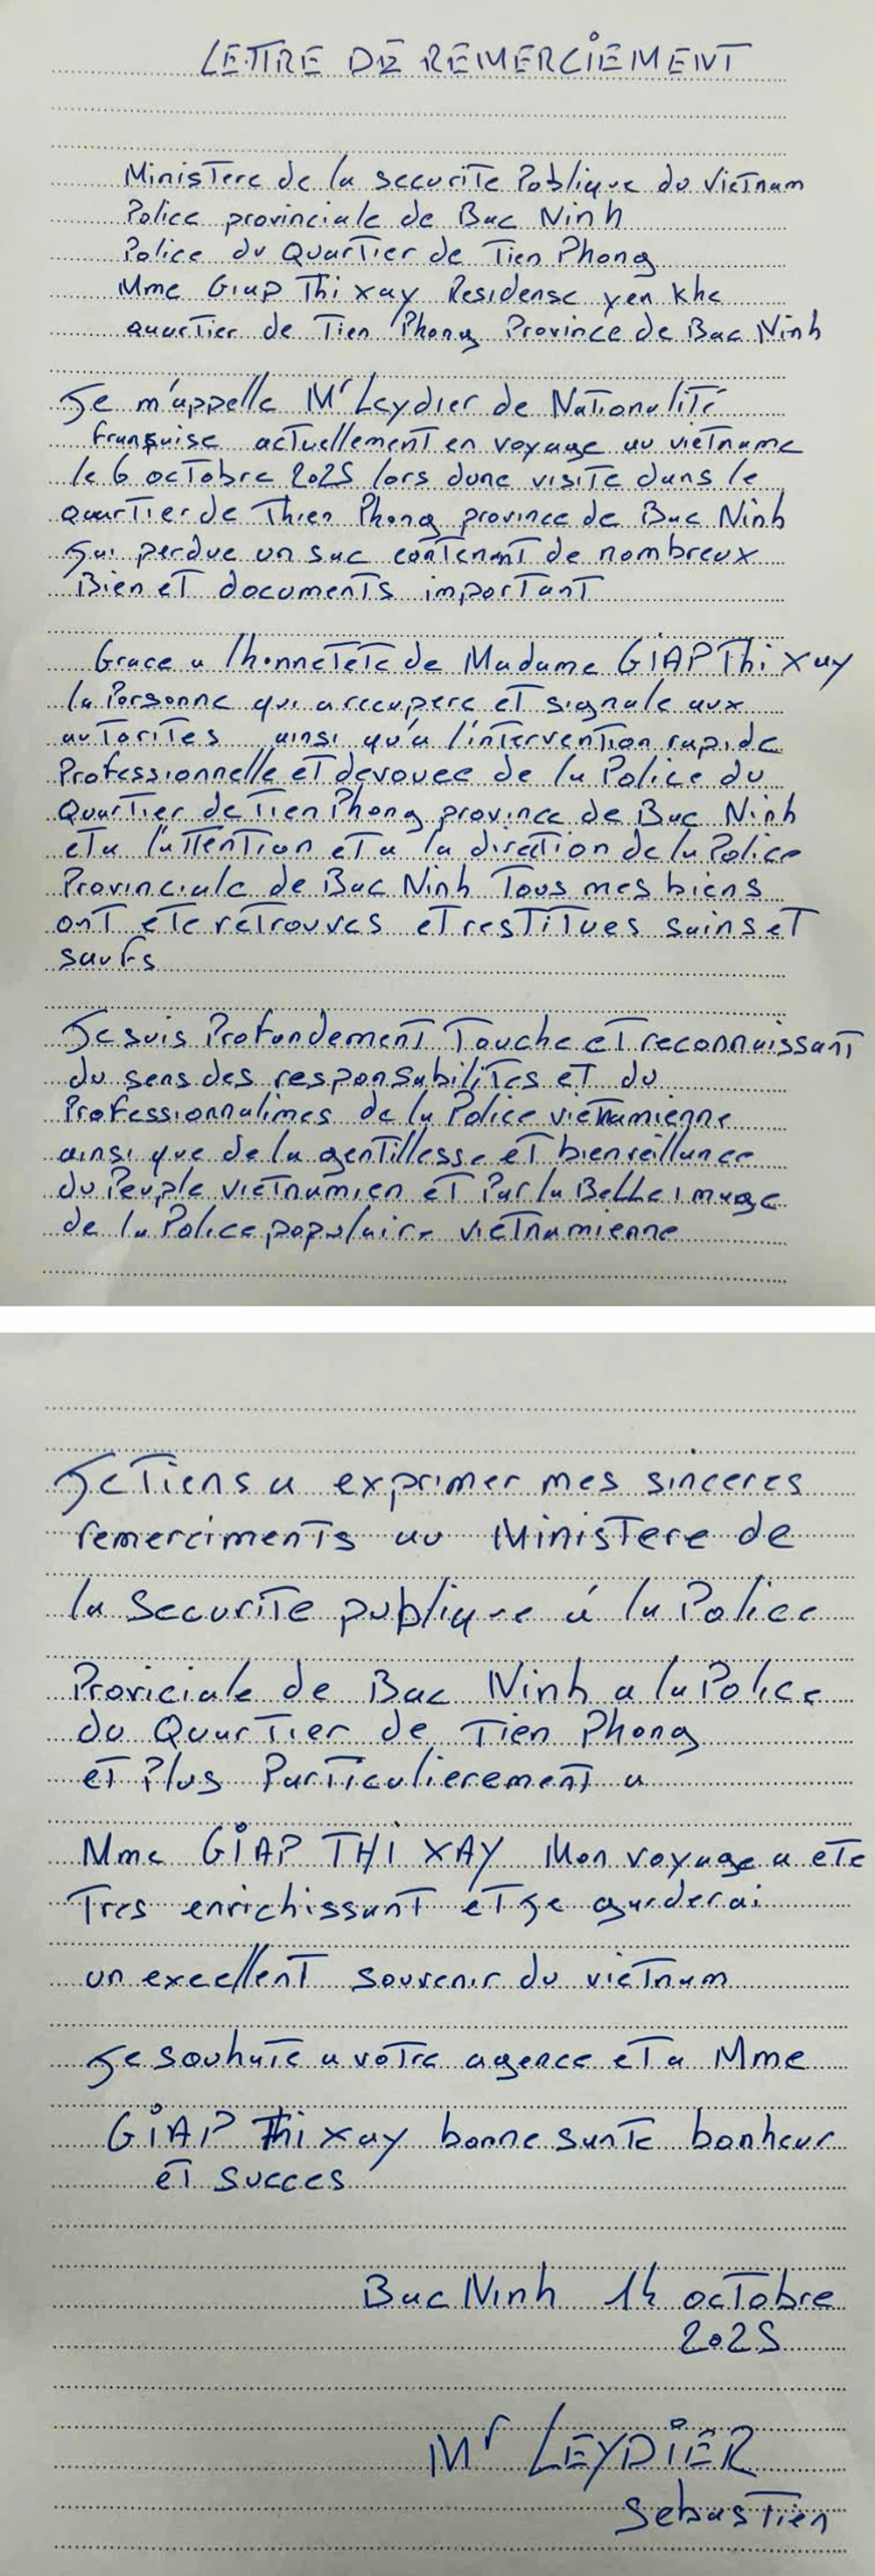 LETTRE DE REMERCIEMENT
Ministere de la securite Publique du Vietnam
Police provinciale de Bac Ninh
Police du Quartier de Tien Phong
Mme Giap Thi xay Residense yen khe
quartier de Tien Phong Province de Bac Ninh
Je m'appelle Mr Leydier de Nationalité
française actuellement en voyage au vietname
le 6 octobre 2025 lors dune visite dans le
quartier de Thien Phong province de Bac Ninh
Jai perdue un sac contenant de nombreux
Bien et documents important
Grace a lhonnetete de Madame GIAP Thi xay
la Personne qui a recupere et signale aux
autorites ainsi qu'a l'intervention rapide
Professionnelle et devouee de la Police du
Quartier de Tien Phong province de Bac Ninh
et a l'attention et a la direction de la Police
Provinciale de Bac Ninh Tous mes biens
ont ete retrouves et restitues sains et
saufs
Je suis Profondement Touche et reconnaissant
du sens des responsabilites et du
Professionnalimes de la Police vietnamienne
ainsi que de la gentillesse et bienveillance
du Peuple vietnamien et Par la Belle image
de la Police populaire vietnamienne
Je Tiens a exprimer mes sinceres
remerciments au Ministere de
la Securite publique á la Police
Proviciale de Bac Ninh a la Police
du Quartier de Tien Phong
et Plus Particulierement a
Mme GIAP THI XAY Mon voyage a ete
Tres enrichissant et Je garderai
un excellent souvenir du vietnam
Je souhaite a votre agence et a Mme
GIAP Thi xay bonne sante bonheur
et succes
Bac Ninh 14 octobre
2025
Mr LEYDIER
Sebastien